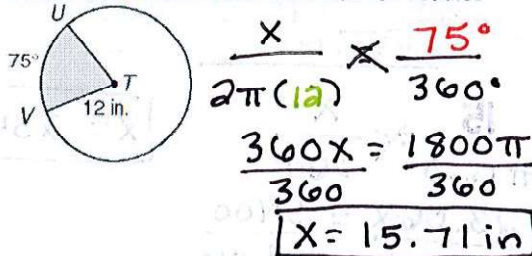 U
75°
T
V
12 in.
x / 2π(12) = 75° / 360°
360x / 360 = 1800π / 360
x = 15.71 in